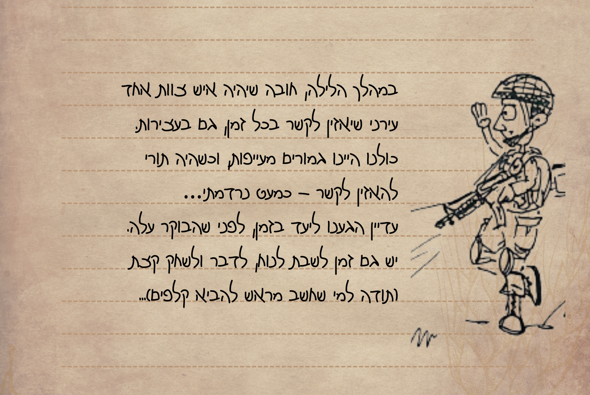 במהלך הלילה, חובה שיהיה איש צוות אחד
עירני שיאזין לקשר בכל זמן, גם בעצירות.
כולנו היינו גמורים מעייפות, וכשהיה תורי
להאזין לקשר – כמעט נרדמתי...
עדיין הגענו ליעד בזמן, לפני שהבוקר עלה.
יש גם זמן לשבת לנוח, לדבר ולשחק קצת
(תודה למי שחשב מראש להביא קלפים)...